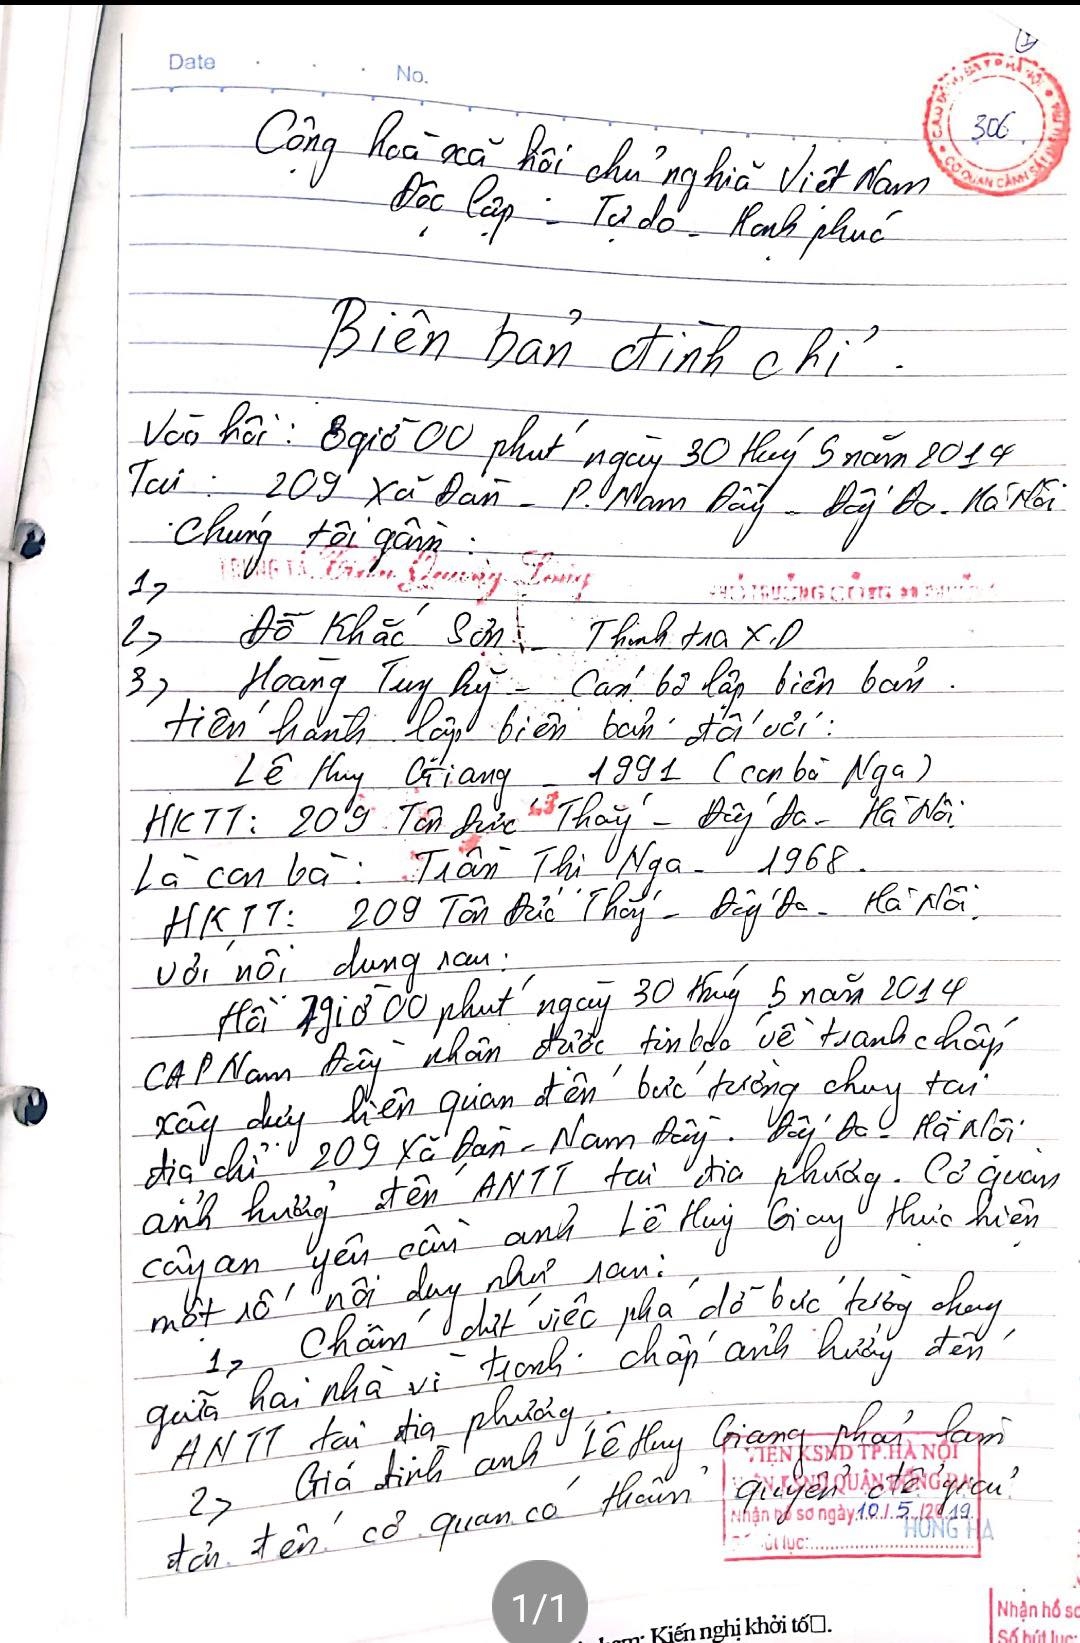 Date
No.
①
306
CƠ QUAN CẢNH SÁT
Cộng hoà xã hội chủ nghĩa Việt Nam
Độc lập - Tự do - Hạnh phúc
Biên bản đình chỉ.
Vào hồi: 8 giờ 00 phút ngày 30 tháng 5 năm 2014
Tại: 209 Xã Đàn - P. Nam Đồng - Đống Đa - Hà Nội
Chúng tôi gồm:
1, TRUNG TÁ
2, Đỗ Khắc Sơn - Thanh tra X.D
3, Hoàng Tuy Kỳ - Cán bộ lập biên bản.
tiến hành lập biên bản đối với:
Lê Huy Giang - 1991 (con bà Nga)
HKTT: 209 Tôn Đức Thắng - Đống Đa - Hà Nội
Là con bà: Trần Thị Nga - 1968.
HKTT: 209 Tôn Đức Thắng - Đống Đa - Hà Nội.
Với nội dung sau:
Hồi 7 giờ 00 phút ngày 30 tháng 5 năm 2014
CAP Nam Đồng nhận được tin báo về tranh chấp
xây dựng liên quan đến bức tường chung tại
địa chỉ 209 Xã Đàn - Nam Đồng - Đống Đa - Hà Nội
ảnh hưởng đến ANTT tại địa phương. Cơ quan
công an yêu cầu anh Lê Huy Giang thực hiện
một số nội dung như sau:
1, Chấm dứt việc phá dỡ bức tường chung
giữa hai nhà vì tranh chấp ảnh hưởng đến
ANTT tại địa phương.
2, Gia đình anh Lê Huy Giang phải làm
đơn đến cơ quan có thẩm quyền để giải
VIỆN KSND TP.HÀ NỘI
VIỆN KSND QUẬN ĐỐNG ĐA
Nhận hồ sơ ngày 10/5/2019
Số bút lục:
HỒNG HÀ
1/1
Kiến nghị khởi tố□.
Nhận hồ sơ
Số bút lục: